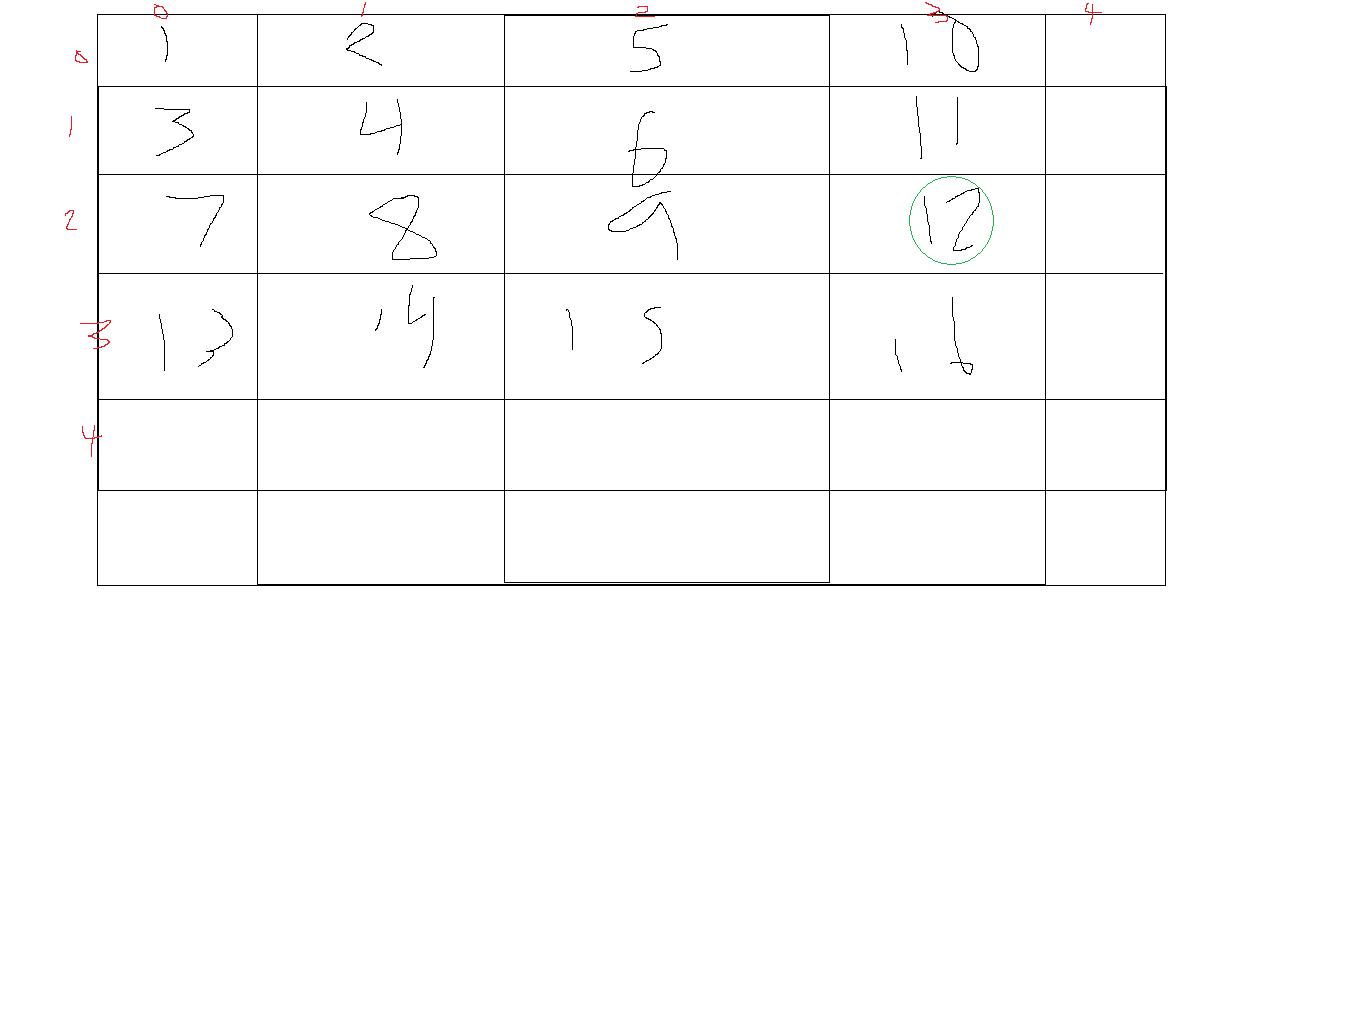 0 1 2 3 4
0 1 2 5 10
1 3 4 6 11
2 7 8 9 12
3 13 14 15 16
4